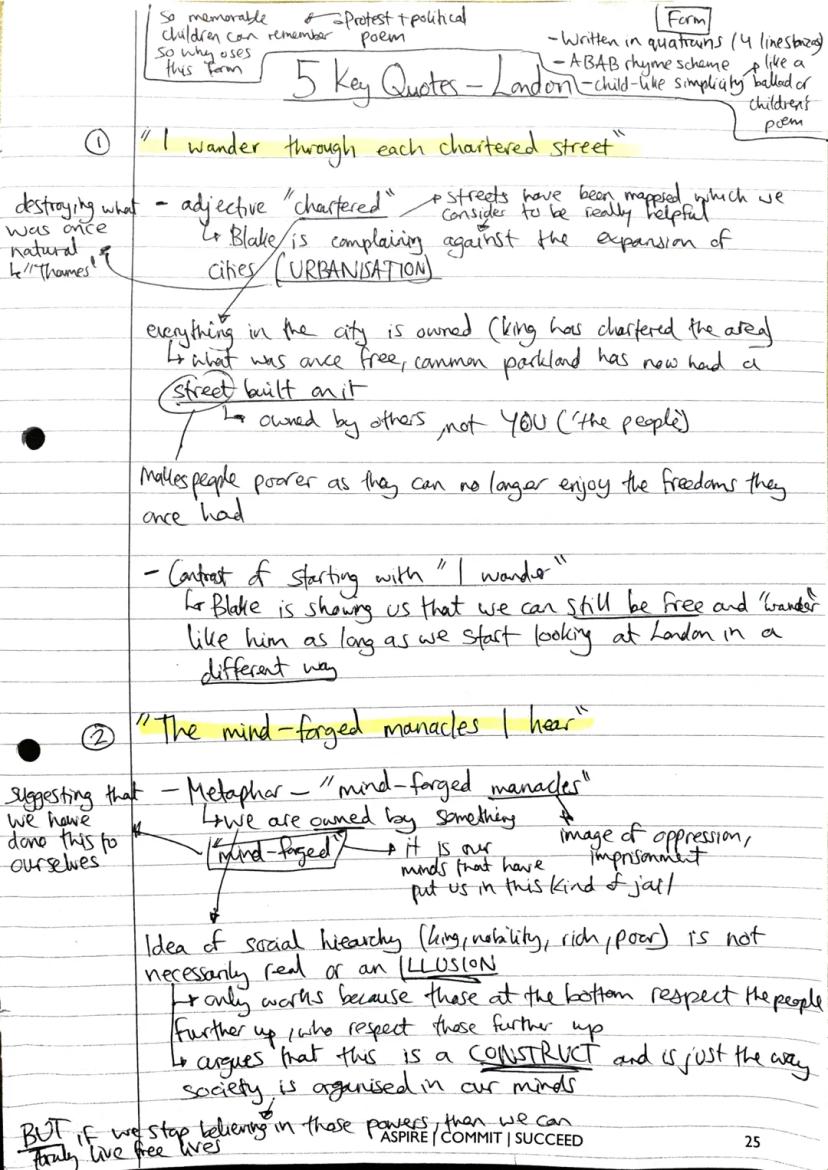 so memorable
children can remember
so why uses
this form
Protest + political
poem
Form
- Written in quatrains (4 line stanzas)
- ABAB rhyme scheme
- child-like simplicity
like a
ballad or
children's
poem
5 Key Quotes - London
1 "I wander through each chartered street"
destroying what
was once
natural
↳ "Thames"
- adjective "chartered"
→ streets have been mapped which we
consider to be really helpful
↳ Blake is complaining against the expansion of
cities (URBANISATION)
everything in the city is owned (king has chartered the area)
↳ what was once free, common parkland has now had a
street built on it
↳ owned by others, not YOU ('the people')
Makes people poorer as they can no longer enjoy the freedoms they
once had
- Contrast of starting with "I wander"
↳ Blake is showing us that we can still be free and "wander"
like him as long as we start looking at London in a
different way
2 "The mind-forged manacles I hear"
suggesting that
we have
done this to
ourselves
- Metaphor - "mind-forged manacles"
↳ we are owned by something
"mind-forged"
→ it is our
minds that have
put us in this kind of jail
image of oppression,
imprisonment
Idea of social hierachy (king, nobility, rich, poor) is not
necessarily real or an ILLUSION
↳ only works because those at the bottom respect the people
further up, who respect those further up
↳ argues that this is a CONSTRUCT and is just the way
society is organised in our minds
BUT if we stop believing in those powers, then we can
truly live free lives
ASPIRE | COMMIT | SUCCEED
25